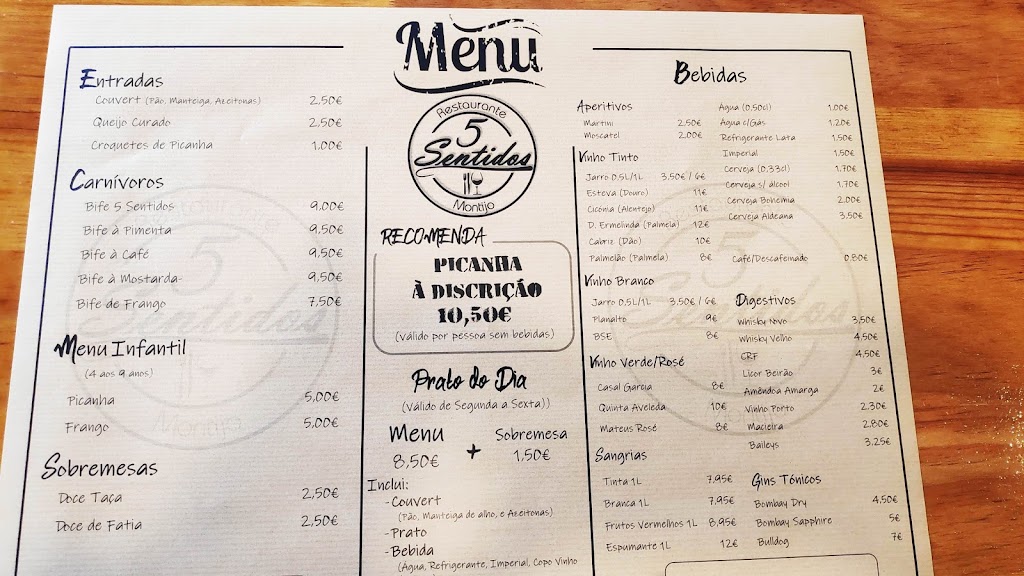 Menu
Entradas
Couvert (Pão, Manteiga, Azeitonas) 2,50€
Queijo Curado 2,50€
Croquetes de Picanha 1,00€
Carnívoros
Bife 5 Sentidos 9,00€
Bife à Pimenta 9,50€
Bife à Café 9,50€
Bife à Mostarda- 9,50€
Bife de Frango 7,50€
Menu Infantil
(4 aos 9 anos)
Picanha 5,00€
Frango 5,00€
Sobremesas
Doce Taça 2,50€
Doce de Fatia 2,50€
Restaurante
5
Sentidos
Montijo
RECOMENDA
PICANHA
À DISCRIÇÃO
10,50€
(Válido por pessoa sem bebidas)
Prato do Dia
(Válido de Segunda a Sexta))
Menu + Sobremesa
8,50€ 1,50€
Inclui:
-Couvert
(Pão, Manteiga de alho, e Azeitonas)
-Prato
-Bebida
(Água, Refrigerante, Imperial, Copo Vinho
Bebidas
Aperitivos
Martini 2.50€
Moscatel 2.00€
Vinho Tinto
Jarro 0,5L/1L 3.50€ / 6€
Esteva (Douro) 11€
Ciconia (Alentejo) 11€
D. Ermelinda (Palmela) 12€
Cabriz (Dão) 10€
Palmelão (Palmela) 8€
Vinho Branco
Jarro 0,5L/1L 3.50€ / 6€
Planalto 9€
BSE 8€
Vinho Verde/Rosé
Casal Garcia 8€
Quinta Aveleda 10€
Mateus Rosé 8€
Sangrias
Tinta 1L 7,95€
Branca 1L 7,95€
Frutos Vermelhos 1L 8,95€
Espumante 1L 12€
Água (0,50cl) 1.00€
Água c/Gás 1.20€
Refrigerante Lata 1.50€
Imperial 1.50€
Cerveja (0,33cl) 1.70€
Cerveja s/ álcool 1.70€
Cerveja Bohemia 2.00€
Cerveja Aldeana 3.50€
Café/Descafeinado 0.80€
Digestivos
Whisky Novo 3,50€
Whisky Velho 4,50€
CRF 4,50€
Licor Beirão 3€
Amêndoa Amarga 2€
Vinho Porto 2.30€
Macieira 2.80€
Baileys 3.25€
Gins Tónicos
Bombay Dry 4,50€
Bombay Sapphire 5€
Bulldog 7€